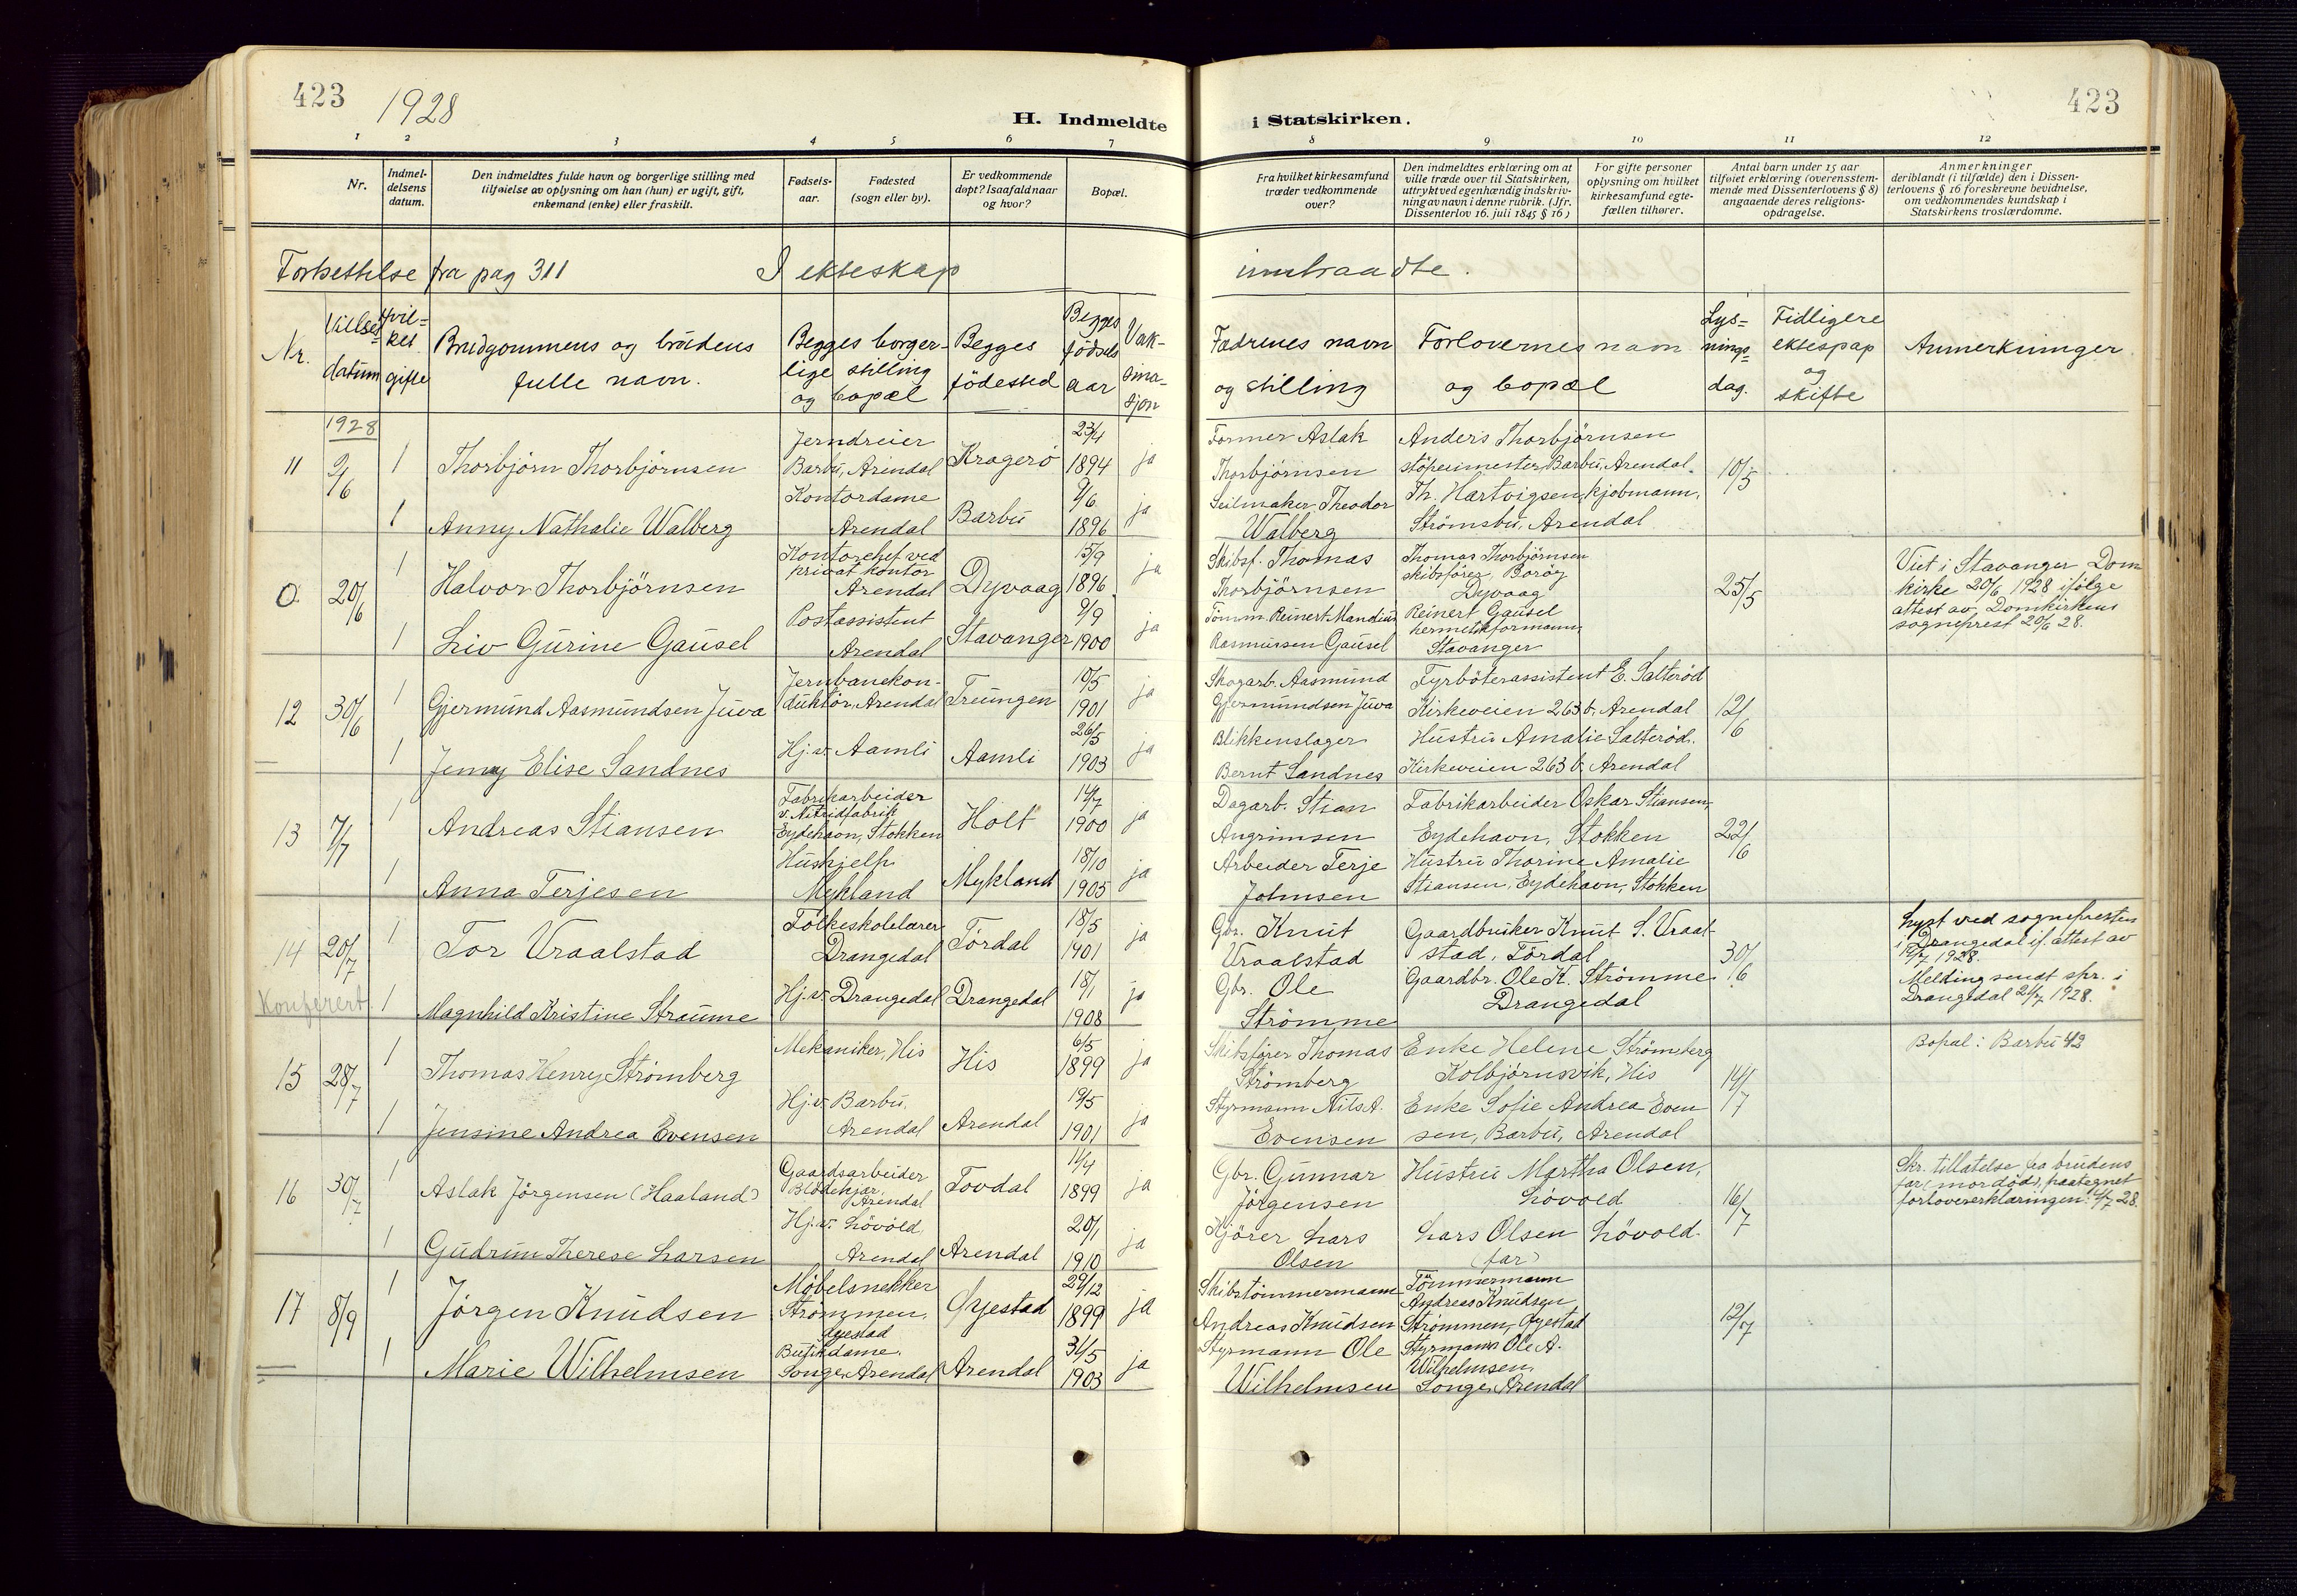 423
1928
H. Indmeldte
i Statskirken.
423
1 2 3 4 5 6 7
8 9 10 11 12
Nr.
Indmel-
delsens
datum.
Den indmeldtes fulde navn og borgerlige stilling med
tilføielse av oplysning om han (hun) er ugift, gift,
enkemand (enke) eller fraskilt.
Fødsels-
aar.
Fødested
(sogn eller by).
Er vedkommende
døpt? Isaafald naar
og hvor?
Bopæl.
Fra hvilket kirkesamfund
træder vedkommende
over?
Den indmeldtes erklæring om at
ville træde over til Statskirken,
uttrykt ved egenhændig indskriv-
ning av navn i denne rubrik. (Jfr.
Dissenterlov 16. juli 1845 § 16)
For gifte personer
oplysning om hvilket
kirkesamfund egte-
fællen tilhører.
Antal barn under 15 aar
tilføiet erklæring (overensstem-
mende med Dissenterlovens § 8)
angaaende deres religions-
opdragelse.
Anmerkninger
deriblandt (i tilfælde) den i Dissen-
terlovens § 16 foreskrevne bevidnelse,
om vedkommendes kundskap i
Statskirkens troslærdomme.
Fortsettelse fra pag 311 I ekteskap
inntraadte.
Nr.
Vielses
datum
Hvil=
ket
gifte
Brudgommens og brudens
fulle navn.
Begges borger-
lige stilling
og bopæl
Begges
födested
Begges
födsels
aar
Vak-
sina-
sjon
Fædrenes navn
og stilling
Forlovernes navn
og bopæl
Lys=
nings=
dag.
Tidligere
ektespap
og
skifte
Anmerkninger
1928
11 9/6 1 Thorbjörn Thorbjörnsen
Jerndreier
Barbu, Arendal
Kragerö
23/4
1894
ja
Former Aslak
Thorbjörnsen
Anders Thorbjörnsen
støperimester, Barbu, Arendal.
10/5
1 Anny Nathalie Walberg
Kontordame
Arendal
Barbu
9/6
1896
ja
Seilmaker Theodor
Walberg
Th. Hartvigsen, kjøbmann,
Strömsbu, Arendal
0. 20/6 1 Halvor Thorbjörnsen
Kontorchef ved
privat kontor
Arendal
Dyvaag
15/9
1896
ja
Skibsf. Thomas
Thorbjörnsen
Thomas Thorbjörnsen
skibsförer, Boröy
Dyvaag
25/5
Viet i Stavanger Dom
kirke 20/6 1928 ifölge
attest av Domkirkens
sogneprest 20/6 28.
1 Liv Gurine Gausel
Postassistent
Arendal
Stavanger
9/9
1900
ja
Tömm. Reinert Mandius
Rasmussen Gausel
Reinert Gausel
hermetikformann
Stavanger
12 30/6 1 Gjermund Aasmundsen Juva
Jernbanekon-
duktör, Arendal
Treungen
10/5
1901
ja
Skogarb. Aasmund
Gjermundsen Juva
Fyrböterassistent E. Salteröd
Kirkeveien 263 b, Arendal
12/6
1 Jenny Elise Sandnes
Hj. v. Aamli
Aamli
26/5
1903
ja
Blikkenslager
Bernt Sandnes
Hustru Amalie Salteröd.
Kirkeveien 263 b, Arendal
13 7/7 1 Andreas Stiansen
Fabrikarbeider
v. Nitridfabrik
Eydehavn, Stokken
Holt
14/7
1900
ja
Dagarb. Stian
Angrimsen
Fabrikarbeider Oskar Stiansen,
Eydehavn, Stokken
22/6
1 Anna Terjesen
Hushjelp
Mykland
Mykland
18/10
1905
ja
Arbeider Terje
Johnsen
Hustru Thorine Amalie
Stiansen, Eydehavn, Stokken
14 20/7 1 Tor Uraalstad
Folkeskolelærer
Drangedal
Tördal
18/5
1901
ja
Gbr. Knut
Uraalstad
Gaardbruker Knut S. Uraal-
stad, Tördal
30/6
Lyst ved sognepresten
i Drangedal if. attest av
19/7 1928.
Melding sendt spr. i
Drangedal 21/7 1928.
Konferert. 1 Magnhild Kristine Straume
Hj. v. Drangedal
Drangedal
18/1
1908
ja
Gbr. Ole
Strömme
Gaardbr. Ole K. Strömme
Drangedal
15 28/7 1 Thomas Henry Strömberg
Mekaniker, His
His
6/5
1899
ja
Skibsförer Thomas
Strömberg
Enke Helene Strömberg
Kolbjörnsvik, His
14/7
Bopal: Barbu 42
1 Jensine Andrea Evensen
Hj. v. Barbu,
Arendal
Arendal
19/5
1901
ja
Styrmann Nils A.
Evensen
Enke Sofie Andrea Even
sen, Barbu, Arendal
16 30/7 1 Aslak Jörgensen (Haaland)
Gaardsarbeider
Blödekjær,
Arendal
Tovdal
11/4
1899
ja
Gbr. Gunnar
Jörgensen
Hustru Martha Olsen,
Lövold
16/7
Skr. tillatelse fra brudens
far (mor död), paategnet
forlovererklæringen. 4/7 28.
1 Gudrun Therese Larsen
Hj. v. Lövold,
Arendal
Arendal
20/1
1910
ja
Kjörer Lars
Olsen
Lars Olsen Lövold.
(far)
17 8/9 1 Jörgen Knudsen
Möbelsnekker
Strömmen,
Øyestad
Øyestad
29/12
1899
ja
Skibstömmermann
Andreas Knudsen
Tömmermann
Andreas Knudsen
Strömmen, Øyestad
12/7
1 Marie Wilhelmsen
Butikdame.
Songe, Arendal
Arendal
31/5
1903
ja
Styrmann Ole
Wilhelmsen
Styrmann Ole A.
Wilhelmsen,
Songe, Arendal